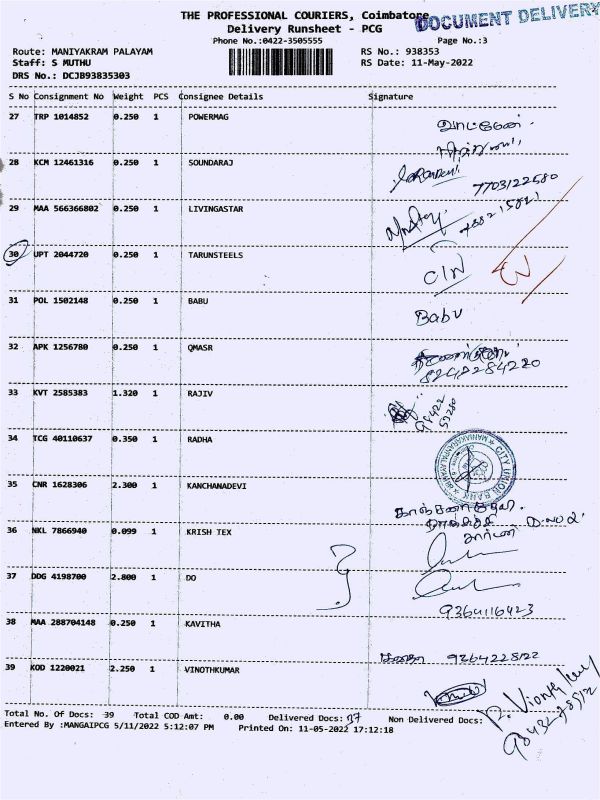 THE PROFESSIONAL COURIERS, Coimbatore
DOCUMENT DELIVERY
Delivery Runsheet - PCG
Phone No.:0422-3505555 Page No.:3
Route: MANIYAKRAM PALAYAM RS No.: 938353
Staff: S MUTHU RS Date: 11-May-2022
DRS No.: DCJB93835303
S No Consignment No Weight PCS Consignee Details Signature
27 TRP 1014852 0.250 1 POWERMAG
28 KCM 12461316 0.250 1 SOUNDARAJ
7703122580
29 MAA 566366802 0.250 1 LIVINGASTAR
30 UPT 2044720 0.250 1 TARUNSTEELS
31 POL 1502148 0.250 1 BABU
Babu
32 APK 1256780 0.250 1 QMASR
8248284220
33 KVT 2585383 1.320 1 RAJIV
34 TCG 40110637 0.350 1 RADHA
CITY UNION BANK
35 CNR 1628306 2.300 1 KANCHANADEVI
36 NKL 7866940 0.099 1 KRISH TEX
37 DDG 4198700 2.800 1 DO
9364116423
38 MAA 288704148 0.250 1 KAVITHA
9364228122
39 KOD 1220021 2.250 1 VINOTHKUMAR
Total No. Of Docs: 39 Total COD Amt: 0.00 Delivered Docs: 37 Non Delivered Docs:
Entered By :MANGAIPCG 5/11/2022 5:12:07 PM Printed On: 11-05-2022 17:12:18